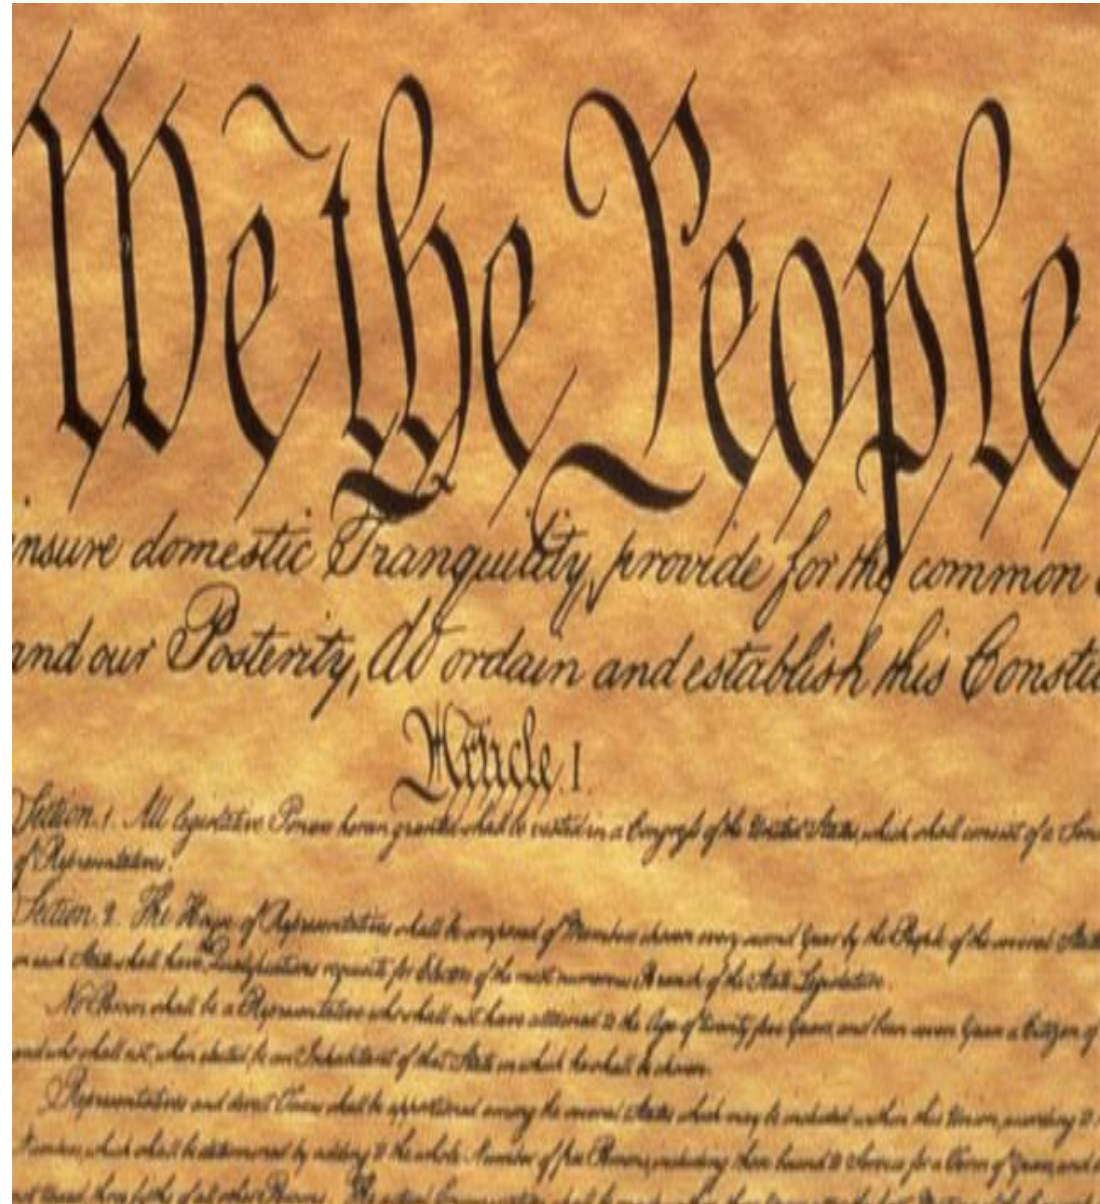 We the People
insure domestic Tranquility, provide for the common
and our Posterity, do ordain and establish this Constit
Article. I.
Section. 1. All legislative Powers herein granted shall be vested in a Congress of the United States, which shall consist of a Sen
of Representatives.
Section. 2. The House of Representatives shall be composed of Members chosen every second Year by the People of the several States
in each State shall have Qualifications requisite for Electors of the most numerous Branch of the State Legislature.
No Person shall be a Representative who shall not have attained to the Age of twenty five Years, and been seven Years a Citizen of
and who shall not, when elected, be an Inhabitant of that State in which he shall be chosen.
Representatives and direct Taxes shall be apportioned among the several States which may be included within this Union, according to
Numbers, which shall be determined by adding to the whole Number of free Persons, including those bound to Service for a Term of Years, and
not taxed, three fifths of all other Persons. The actual Enumeration shall be made